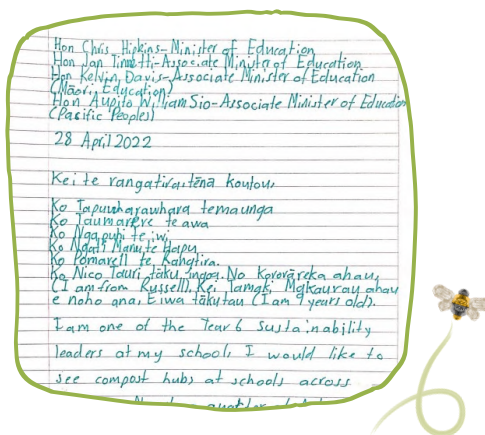 Hon Chris Hipkins-Minister of Education
Hon Jan Tinetti-Associate Minister of Education
Hon Kelvin Davis-Associate Minister of Education
(Māori Education)
Hon Aupito William Sio-Associate Minister of Education
(Pacific Peoples)
28 April 2022
Kei te rangatira, tēna koutou,
Ko Tapuwharawhara te maunga
Ko Taumarere te awa
Ko Ngapuhi te iwi
Ko Ngati Manu te Hapu
Ko Pomare II te Rangatira.
Ko Nico Tauri tāku ingoa. No Kororāreka ahau,
(I am from Russell). Kei Tamaki Makaurau ahau
e noho ana. E iwa tāku tau (I am 9 years old).
I am one of the Year 6 Sustainability
leaders at my school. I would like to
see compost hubs at schools across